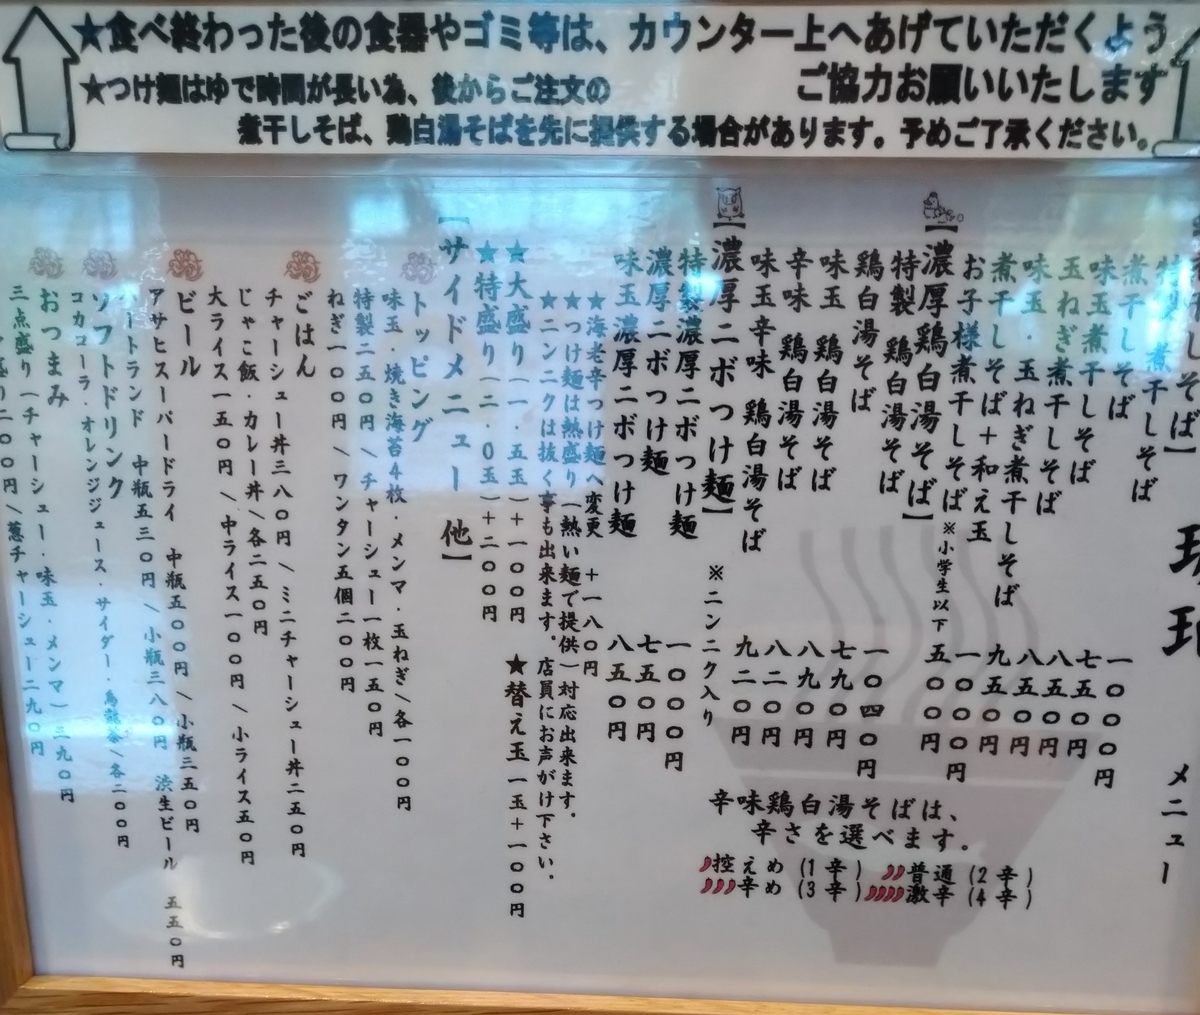 ★食べ終わった後の食器やゴミ等は、カウンター上へあげていただくよう
ご協力お願いいたします
★つけ麺はゆで時間が長い為、後からご注文の
煮干しそば、鶏白湯そばを先に提供する場合があります。予めご了承ください。
メニュー
しそば】
特製 煮干しそば 一〇〇〇円
煮干しそば 七五〇円
味玉煮干しそば 八五〇円
玉ねぎ煮干しそば 八五〇円
味玉・玉ねぎ煮干しそば 九五〇円
煮干しそば+和え玉 一〇〇〇円
お子様煮干しそば ※小学生以下 五〇〇円
【濃厚鶏白湯そば】
特製 鶏白湯そば 一〇四〇円
鶏白湯そば 七九〇円
味玉 鶏白湯そば 八九〇円
辛味 鶏白湯そば 八二〇円
味玉辛味 鶏白湯そば 九二〇円
辛味鶏白湯そばは、
辛さを選べます。
控えめ(1辛) 普通(2辛)
辛め(3辛) 激辛(4辛)
【濃厚ニボつけ麺】 ※ニンニク入り
特製濃厚ニボつけ麺 一〇〇〇円
濃厚ニボつけ麺 七五〇円
味玉濃厚ニボつけ麺 八五〇円
★海老辛つけ麺へ変更 +一八〇円
★つけ麺は熱盛り(熱い麺で提供)対応出来ます。
★ニンニクは抜く事も出来ます。店員にお声がけ下さい。
★大盛り(一・五玉)+一〇〇円 ★替え玉一玉+一〇〇円
★特盛り(二・〇玉)+二〇〇円
【サイドメニュー 他】
トッピング
味玉・焼き海苔4枚・メンマ・玉ねぎ/各一〇〇円
特製二五〇円/チャーシュー一枚一五〇円
ねぎ一〇〇円/ワンタン五個二〇〇円
ごはん
チャーシュー丼三八〇円/ミニチャーシュー丼二五〇円
じゃこ飯・カレー丼/各二五〇円
大ライス一五〇円/中ライス一〇〇円/小ライス五〇円
ビール
アサヒスーパードライ 中瓶五〇〇円/小瓶三五〇円
ハートランド 中瓶五三〇円/小瓶三八〇円 渋生ビール 五五〇円
ソフトドリンク
コカコーラ・オレンジジュース・サイダー・烏龍茶/各二〇〇円
おつまみ
三点盛り(チャーシュー・味玉・メンマ)三九〇円
盛り二〇〇円/葱チャーシュー二九〇円